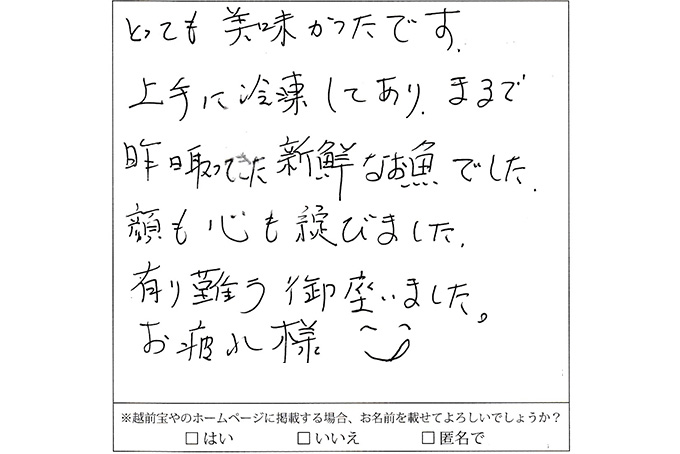 とっても美味かったです.
上手に冷凍してあり.まるで
昨日取ってきた新鮮なお魚でした.
顔も心も綻びました.
有り難う御座いました。
お疲れ様
※越前宝やのホームページに掲載する場合、お名前を載せてよろしいでしょうか？
□はい □いいえ □匿名で